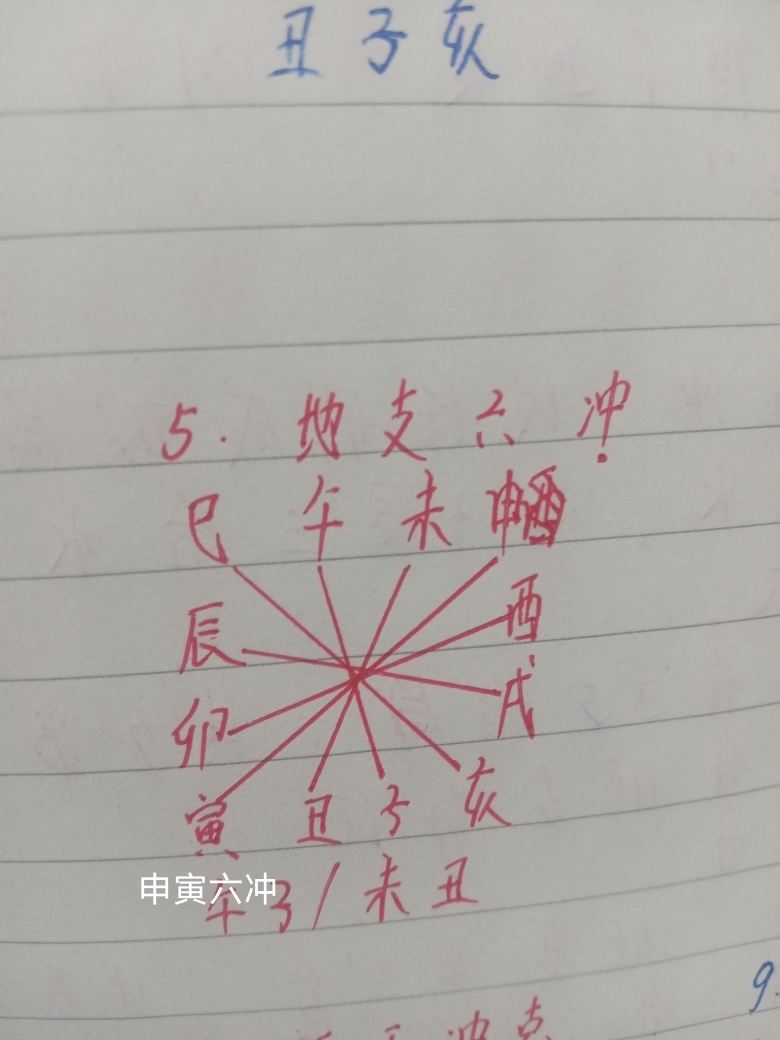 丑子亥
5. 地支六冲
巳午未申
辰酉
卯戌
寅丑子亥
申寅六冲
午子/未丑
冲克
9.